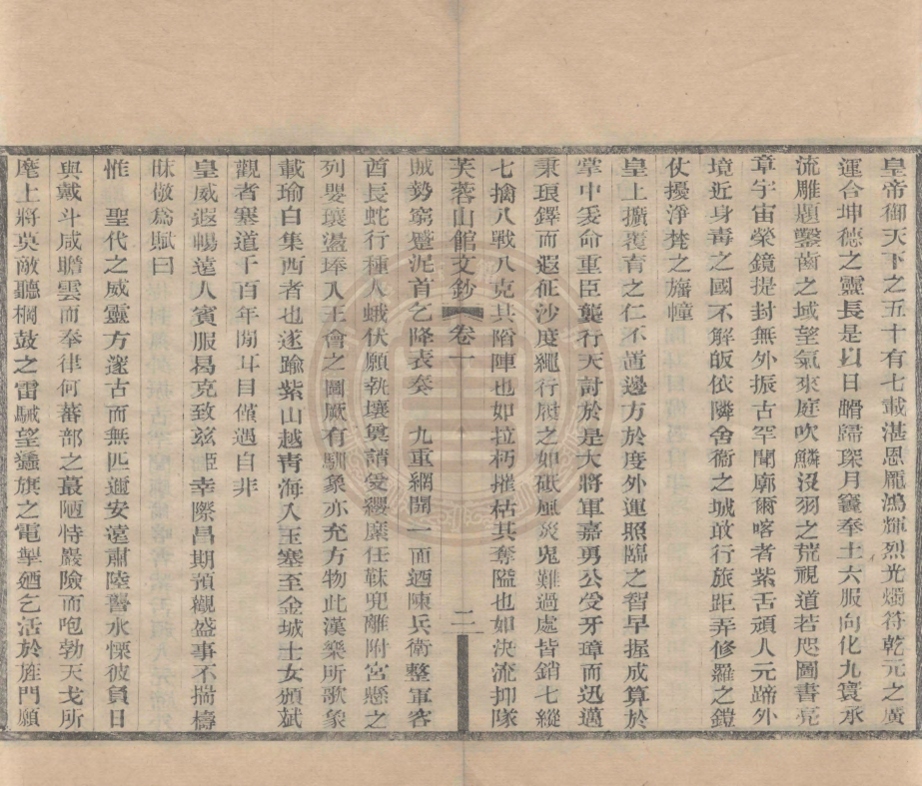 皇帝御天下之五十有七載湛恩龐鴻輝烈光燭符乾元之廣
運合坤德之靈長是以日䏿歸琛月竁奉土六服向化九寰承
流雕題鑿齒之域望氣來庭吹鱗沒羽之荒視道若咫圖書亮
章宇宙榮鏡提封無外振古罕聞廓爾喀者紫舌頑人元蹄外
境近身毒之國不解皈依隣舍衞之城敢行旅距弄修羅之鎧
仗擾淨梵之旛幢
皇上擴覆育之仁不遺邊方於度外運照臨之智早握成算於
掌中爰命重臣龔行天討於是大將軍嘉勇公受牙璋而迅邁
秉琅鐸而遐征沙度繩行屐之如砥風災鬼難過處皆銷七縱
七擒八戰八克其陷陣也如拉朽摧枯其奪隘也如決流抑隊
芙蓉山館文鈔 卷十 二
賊勢窮蹙泥首乞降表奏 九重網開一面迺陳兵衛整軍容
酋長蛇行種人蛾伏願執壤奠請受纓縻任靺兜離附宮懸之
列嬰瓌瑬琫入王會之圖厥有馴象亦充方物此漢樂所歌象
載瑜白集西者也遂踰紫山越靑海入玉塞至金城士女頒斌
觀者塞道千百年閒耳目僅遇自非
皇威遐暢遠人賓服曷克致玆姬幸際昌期預觀盛事不揣檮
昧敬爲賦曰
惟 聖代之威靈方邃古而無匹邇安遠肅陸讋水慄彼負日
與戴斗咸瞻雲而奉律何蕃部之蕞陋恃嚴險而咆勃天戈所
麾上將英敵聽棡鼓之雷駴望蠭旗之電掣迺乞活於旌門願